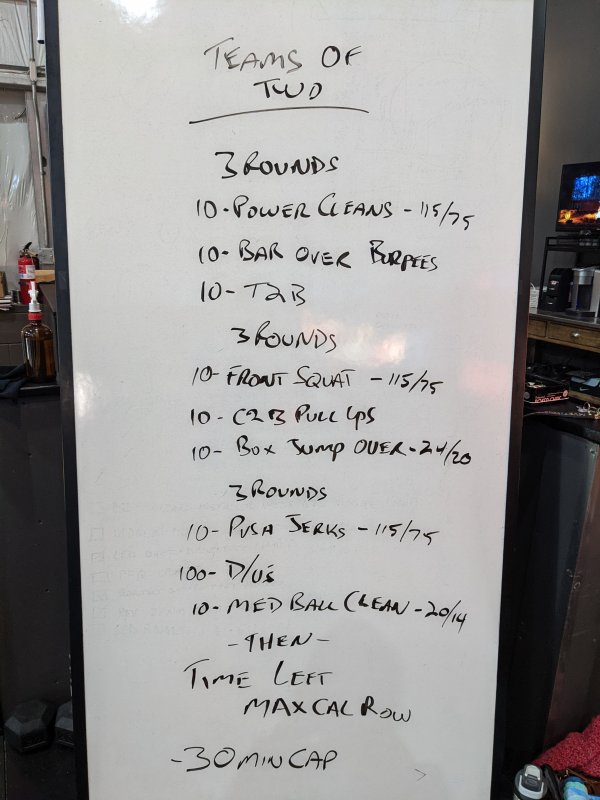 TEAMS OF
TWO
3 ROUNDS
10-POWER CLEANS - 115/75
10- BAR OVER BURPEES
10- T2B
3 ROUNDS
10- FRONT SQUAT - 115/75
10- C2B PULL UPS
10- BOX JUMP OVER - 24/20
3 ROUNDS
10- PUSH JERKS - 115/75
100- D/U's
10- MED BALL CLEAN - 20/14
- THEN -
TIME LEFT
MAX CAL ROW
- 30 MIN CAP